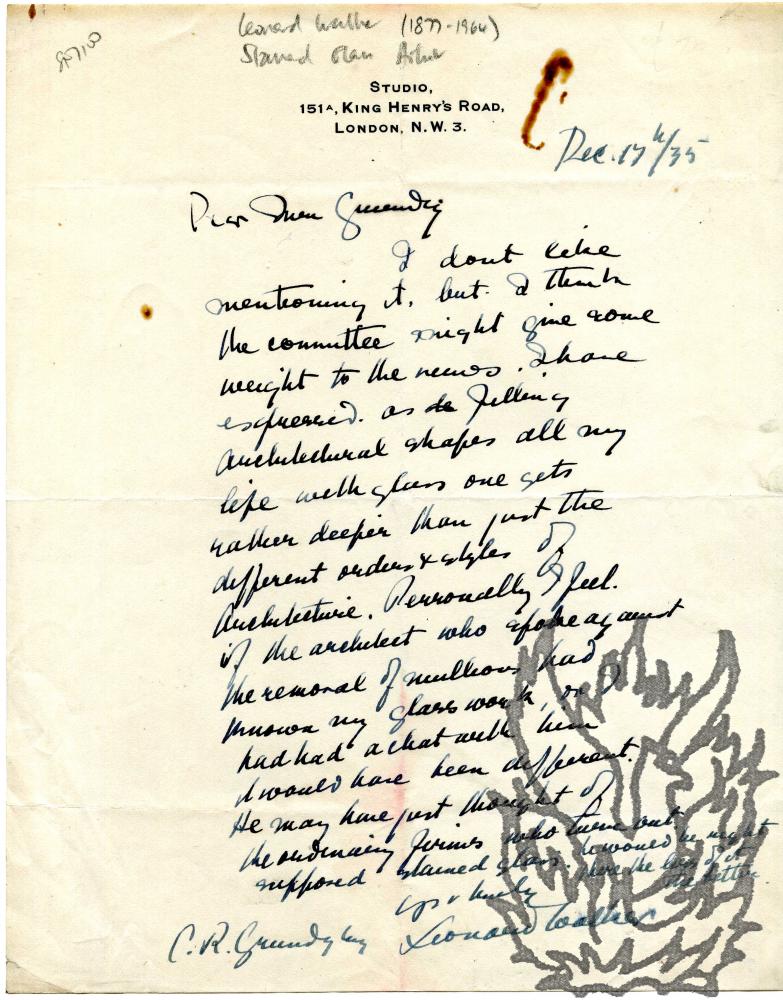 Leonard Walker (1877-1964)
Stained Glass Artist
STUDIO,
151A, KING HENRY'S ROAD,
LONDON, N.W. 3.
Dec. 17th/35
Dear Grundy
I dont like
mentioning it, but I think
the committee might give some
weight to the views I have
expressed. as filling
architectural shapes all my
life with glass one gets
rather deeper than just the
different orders & styles of
Architecture. Personally I feel
if the architect who spoke against
the removal of mullions had
known my glass work, or I
had had a chat with him
it would have been different.
He may have just thought of
the ordinary firms who turn out
supposed stained glass. he would be right
there the less of it
the better
yrs
Leonard Walker
C. R. Grundy Esq